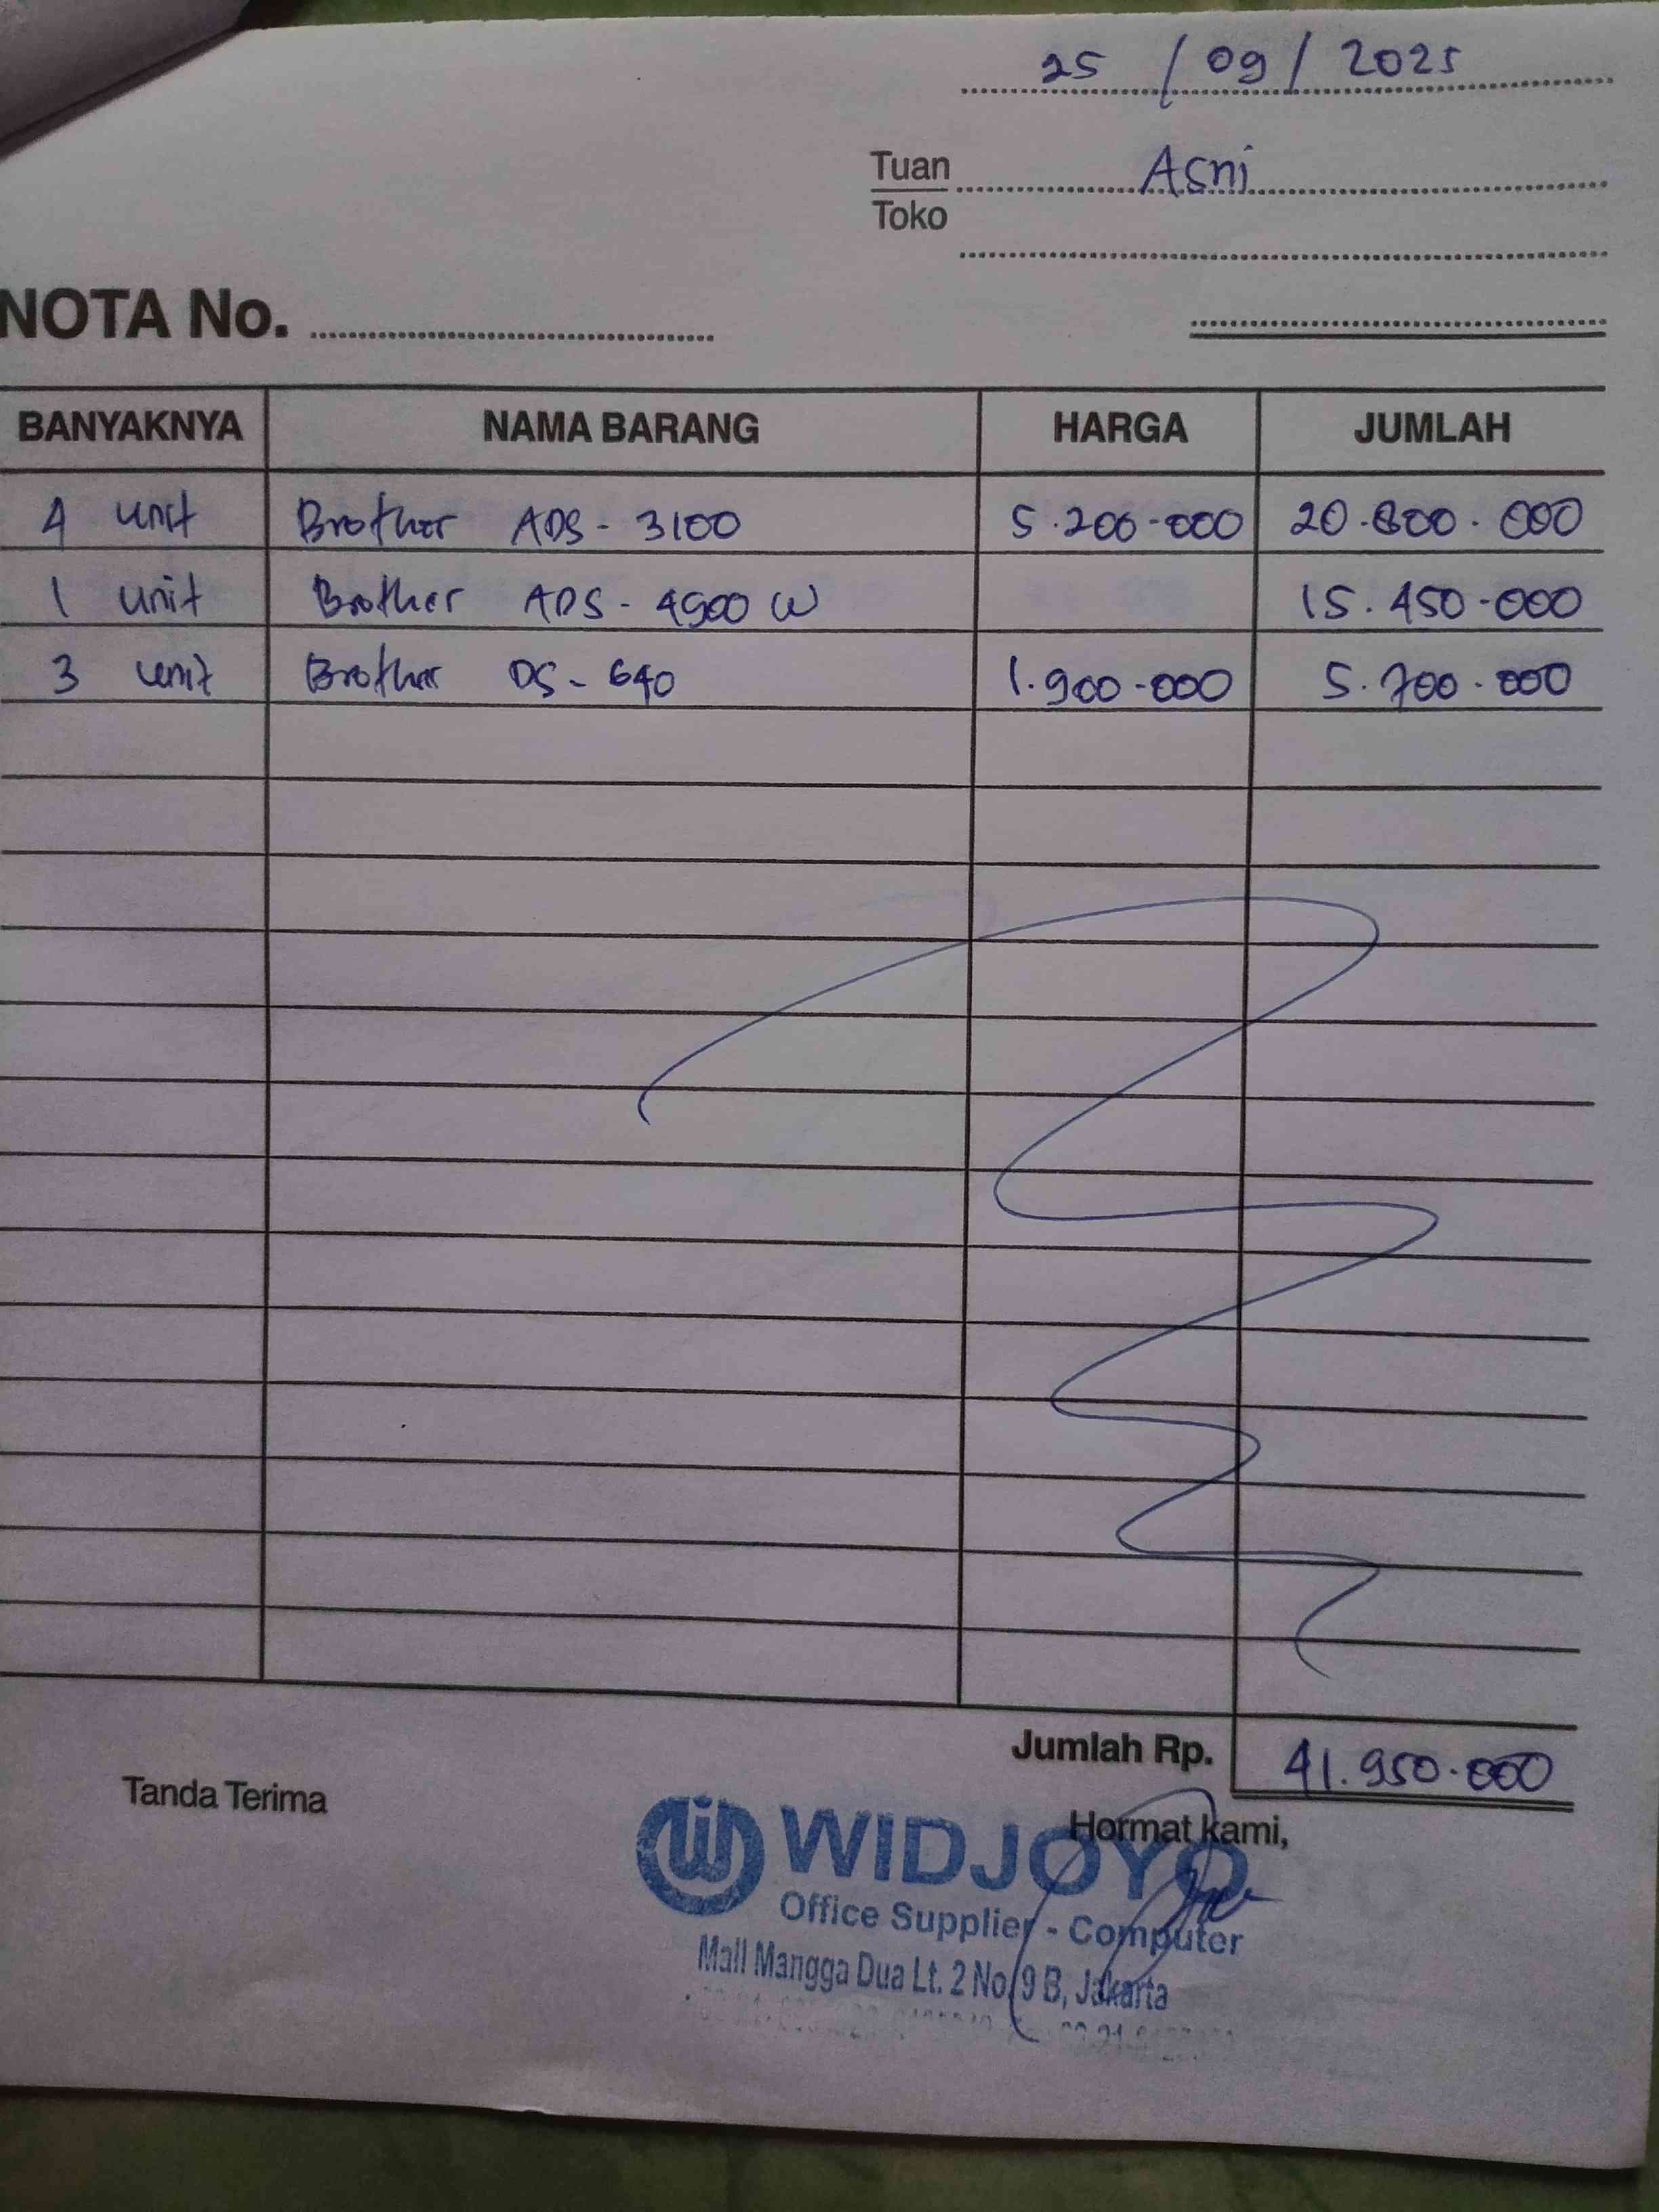 25 / 09 / 2025
Tuan Asni
Toko
NOTA No.
BANYAKNYA NAMA BARANG HARGA JUMLAH
4 unit Brother ADS - 3100 5.200.000 20.800.000
1 unit Brother ADS - 4900 W 15.450.000
3 unit Brother DS - 640 1.900.000 5.700.000
Jumlah Rp. 41.950.000
Tanda Terima
Hormat kami,
WIDJOYO
Office Supplier - Computer
Mall Mangga Dua Lt. 2 No. 9 B, Jakarta